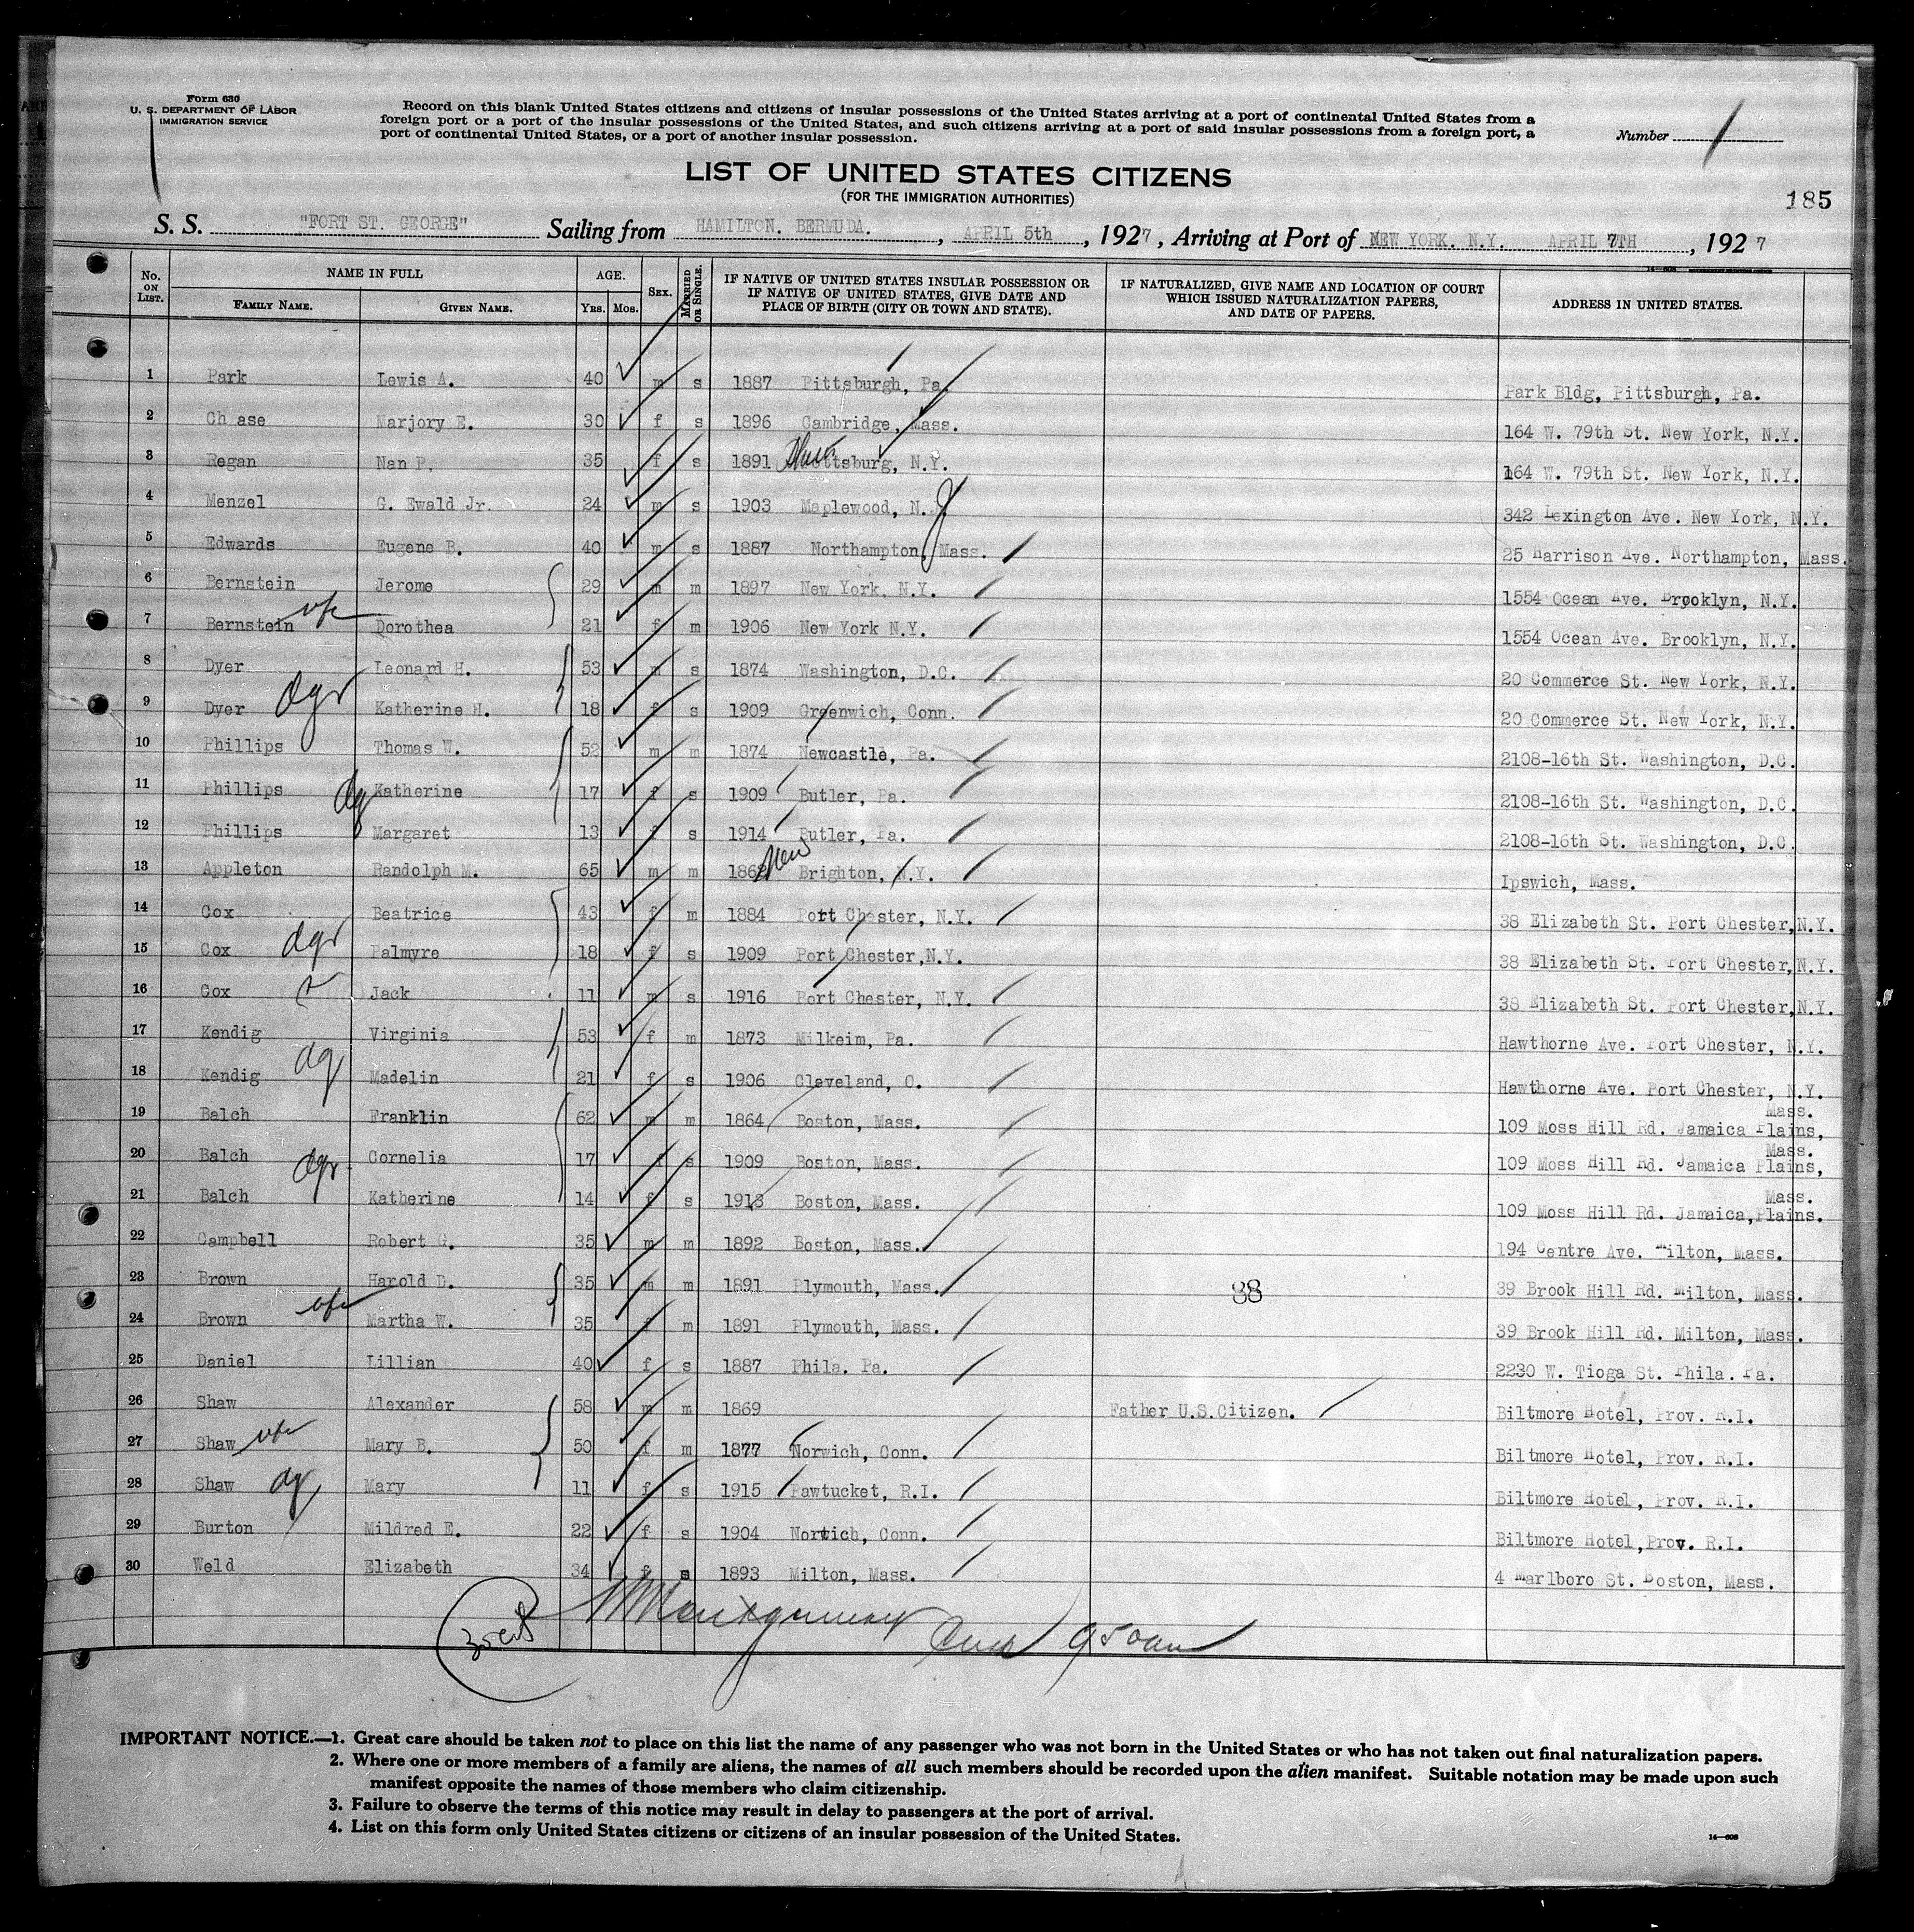 Form 630
U. S. DEPARTMENT OF LABOR
IMMIGRATION SERVICE
Record on this blank United States citizens and citizens of insular possessions of the United States arriving at a port of continental United States from a
foreign port or a port of the insular possessions of the United States, and such citizens arriving at a port of said insular possessions from a foreign port, a
port of continental United States, or a port of another insular possession.
Number 1
LIST OF UNITED STATES CITIZENS
(FOR THE IMMIGRATION AUTHORITIES)
185
S. S. "FORT ST. GEORGE" Sailing from HAMILTON. BERMUDA. , APRIL 5th , 1927, Arriving at Port of NEW YORK. N.Y. APRIL 7TH , 1927
No. ON LIST. NAME IN FULL FAMILY NAME. GIVEN NAME. AGE. YRS. MOS. SEX. MARRIED OR SINGLE. IF NATIVE OF UNITED STATES INSULAR POSSESSION OR IF NATIVE OF UNITED STATES, GIVE DATE AND PLACE OF BIRTH (CITY OR TOWN AND STATE). IF NATURALIZED, GIVE NAME AND LOCATION OF COURT WHICH ISSUED NATURALIZATION PAPERS, AND DATE OF PAPERS. ADDRESS IN UNITED STATES.
1 Park Lewis A. 40 m s 1887 Pittsburgh, Pa. Park Bldg, Pittsburgh, Pa.
2 Ch ase Marjory E. 30 f s 1896 Cambridge, Mass. 164 W. 79th St. New York, N.Y.
3 Regan Nan P. 35 f s 1891 ttsburg, N.Y. 164 W. 79th St. New York, N.Y.
4 Menzel G. Ewald Jr. 24 m s 1903 Maplewood, N.J. 342 Lexington Ave. New York, N.Y.
5 Edwards Eugene B. 40 m s 1887 Northampton, Mass. 25 Harrison Ave. Northampton, Mass.
6 Bernstein Jerome 29 m m 1897 New York, N.Y. 1554 Ocean Ave. Brooklyn, N.Y.
7 Bernstein wfe Dorothea 21 f m 1906 New York N.Y. 1554 Ocean Ave. Brooklyn, N.Y.
8 Dyer Leonard H. 53 m s 1874 Washington, D.C. 20 Commerce St. New York, N.Y.
9 Dyer dgr Katherine H. 18 f s 1909 Greenwich, Conn. 20 Commerce St. New York, N.Y.
10 Phillips Thomas W. 52 m m 1874 Newcastle, Pa. 2108-16th St. Washington, D.C.
11 Phillips dg Katherine 17 f s 1909 Butler, Pa. 2108-16th St. Washington, D.C.
12 Phillips Margaret 13 f s 1914 Butler, Pa. 2108-16th St. Washington, D.C.
13 Appleton Randolph M. 65 m m 1862 New Brighton, N.Y. Ipswich, Mass.
14 Cox Beatrice 43 f m 1884 Port Chester, N.Y. 38 Elizabeth St. Port Chester, N.Y.
15 Cox dgr Palmyre 18 f s 1909 Port Chester,N.Y. 38 Elizabeth St. Port Chester, N.Y.
16 Cox Jack 11 m s 1916 Port Chester, N.Y. 38 Elizabeth St. Port Chester, N.Y.
17 Kendig Virginia 53 f m 1873 Milkeim, Pa. Hawthorne Ave. Port Chester, N.Y.
18 Kendig dg Madelin 21 f s 1906 Cleveland, O. Hawthorne Ave. Port Chester, N.Y.
19 Balch Franklin 62 m m 1864 Boston, Mass. 109 Moss Hill Rd. Jamaica Plains, Mass.
20 Balch dgr Cornelia 17 f s 1909 Boston, Mass. 109 Moss Hill Rd. Jamaica Plains, Mass.
21 Balch Katherine 14 f s 1913 Boston, Mass. 109 Moss Hill Rd. Jamaica,Plains. Mass.
22 Campbell Robert G. 35 m m 1892 Boston, Mass. 194 Centre Ave. Milton, Mass.
23 Brown Harold D. 35 m m 1891 Plymouth, Mass. 38 39 Brook Hill Rd. Milton, Mass.
24 Brown wfe Martha W. 35 f m 1891 Plymouth, Mass. 39 Brook Hill Rd. Milton, Mass.
25 Daniel Lillian 40 f s 1887 Phila. Pa. 2230 W. Tioga St. Phila. Pa.
26 Shaw Alexander 58 m m 1869 Father U.S.Citizen. Biltmore Hotel, Prov. R.I.
27 Shaw wfe Mary B. 50 f m 1877 Norwich, Conn. Biltmore Hotel, Prov. R.I.
28 Shaw dg Mary 11 f s 1915 Pawtucket, R.I. Biltmore Hotel, Prov. R.I.
29 Burton Mildred E. 22 f s 1904 Norwich, Conn. Biltmore Hotel,Prov. R.I.
30 Weld Elizabeth 34 f s 1893 Milton, Mass. 4 Marlboro St. Boston, Mass.
Montgomery 950am
IMPORTANT NOTICE.—1. Great care should be taken not to place on this list the name of any passenger who was not born in the United States or who has not taken out final naturalization papers.
2. Where one or more members of a family are aliens, the names of all such members should be recorded upon the alien manifest. Suitable notation may be made upon such
manifest opposite the names of those members who claim citizenship.
3. Failure to observe the terms of this notice may result in delay to passengers at the port of arrival.
4. List on this form only United States citizens or citizens of an insular possession of the United States.
14—808